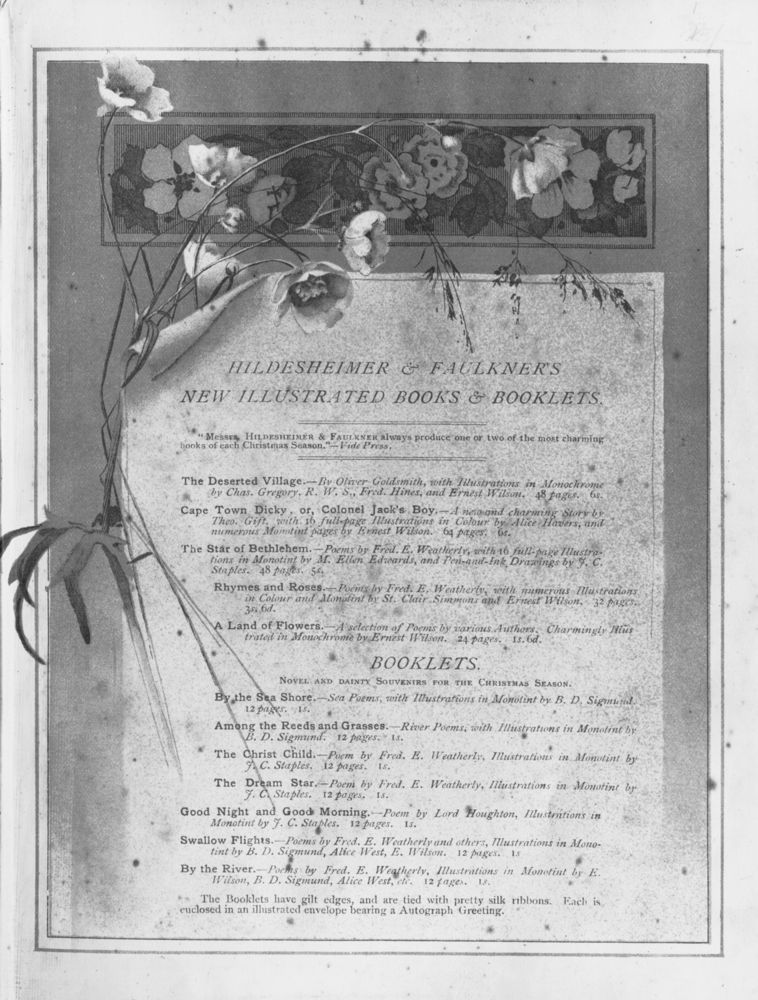 HILDESHEIMER & FAULKNER'S
NEW ILLUSTRATED BOOKS & BOOKLETS.
"Messrs. Hildesheimer & Faulkner always produce one or two of the most charming
books of each Christmas Season."—Vide Press.
The Deserted Village.—By Oliver Goldsmith, with Illustrations in Monochrome
by Chas. Gregory, R. W. S., Fred. Hines, and Ernest Wilson. 48 pages. 6s.
Cape Town Dicky, or, Colonel Jack's Boy.—A new and charming Story by
Theo. Gift, with 16 full-page Illustrations in Colour by Alice Havers, and
numerous Monotint pages by Ernest Wilson. 64 pages. 6s.
The Star of Bethlehem.—Poems by Fred. E. Weatherly, with 16 full-page Illustra-
tions in Monotint by M. Ellen Edwards, and Pen-and-Ink Drawings by J. C.
Staples. 48 pages. 5s.
Rhymes and Roses.—Poems by Fred. E. Weatherly, with numerous Illustrations
in Colour and Monotint by St. Clair Simmons and Ernest Wilson. 32 pages.
3s. 6d.
A Land of Flowers.—A selection of Poems by various Authors. Charmingly Illus
trated in Monochrome by Ernest Wilson. 24 pages. 1s. 6d.
BOOKLETS.
Novel and dainty Souvenirs for the Christmas Season.
By the Sea Shore.—Sea Poems, with Illustrations in Monotint by B. D. Sigmund.
12 pages. 1s.
Among the Reeds and Grasses.—River Poems, with Illustrations in Monotint by
B. D. Sigmund. 12 pages. 1s.
The Christ Child.—Poem by Fred. E. Weatherly, Illustrations in Monotint by
J. C. Staples. 12 pages. 1s.
The Dream Star.—Poem by Fred. E. Weatherly, Illustrations in Monotint by
J. C. Staples. 12 pages. 1s.
Good Night and Good Morning.—Poem by Lord Houghton, Illustrations in
Monotint by J. C. Staples. 12 pages. 1s.
Swallow Flights.—Poems by Fred. E. Weatherly and others, Illustrations in Mono-
tint by B. D. Sigmund, Alice West, E. Wilson. 12 pages. 1s
By the River.—Poems by Fred. E. Weatherly, Illustrations in Monotint by E.
Wilson, B. D. Sigmund, Alice West, etc. 12 pages. 1s.
The Booklets have gilt edges, and are tied with pretty silk ribbons. Each is
enclosed in an illustrated envelope bearing a Autograph Greeting.